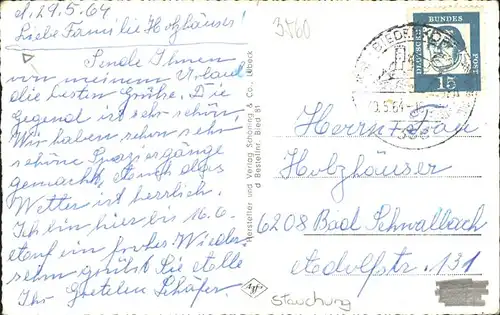 d. 29.5.64
Liebe Familie Holzhäuser!
Sende Ihnen
von meinem Urlaub
die besten Grüße. Die
Gegend ist sehr schön,
Wir haben schon sehr
schöne Spaziergänge
gemacht, auch das
Wetter ist herrlich.
Ich bin hier bis 16.6.
auf ein frohes Wieder
sehn grüßt Sie alle
Ihr Gretchen Schäfer.
3560
Hersteller und Verlag Schöning & Co., Lübeck
d Bestellnr. Bied 81
Agfa
DEUTSCHE BUNDESPOST
15
BIEDENKOPF
.5.64
Herrn
Holzhäuser
6208 Bad Schwalbach
Adolfstr. 131
Stauchung